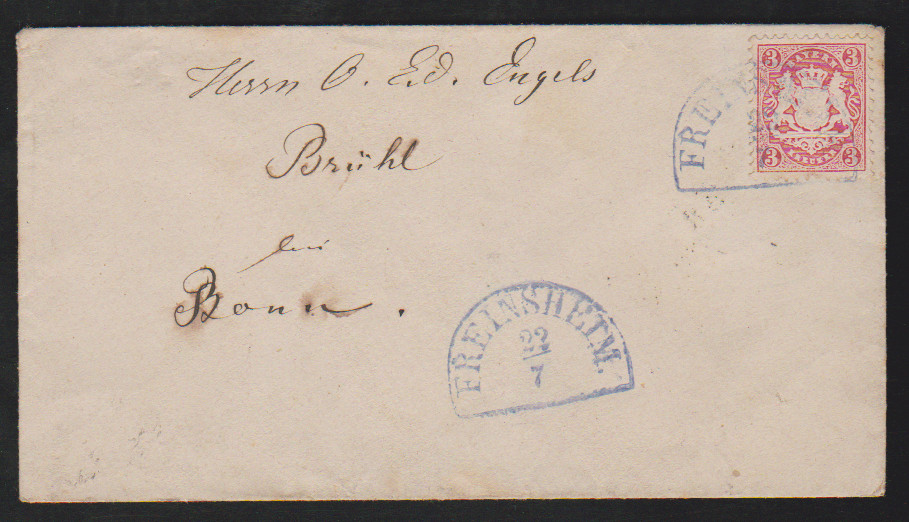 Herrn O. Ed. Engels
Brühl
bei
Bonn.
FREINSHEIM.
22
7
FREI
3 3
BAYERN
3 3